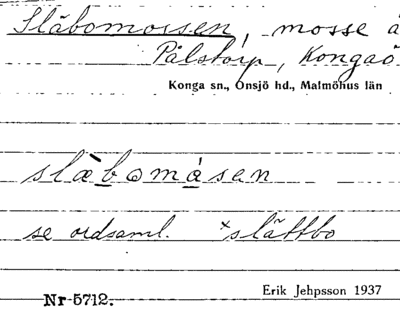 Släbomossen, mosse å
Pålstorp, Kongaö
Konga sn., Onsjö hd., Malmöhus län
slæ̀bomásen
se ordsaml. *slättbo
Nr 5712.
Erik Jehpsson 1937